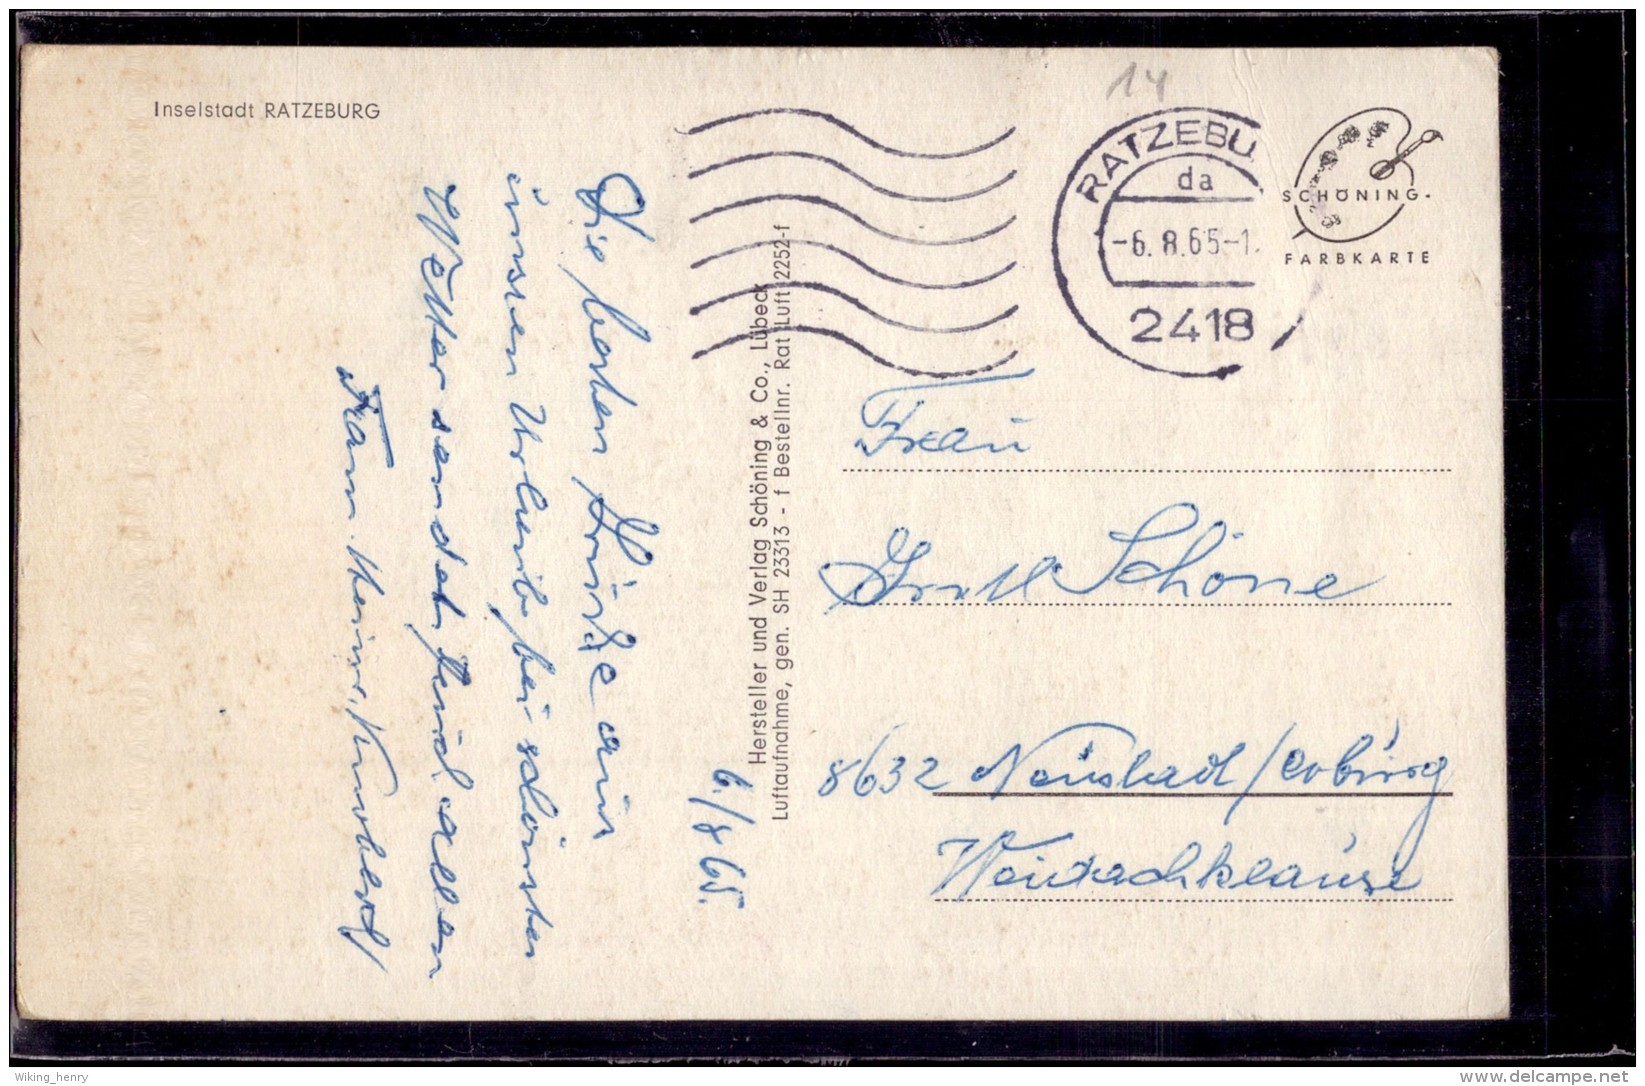 Inselstadt RATZEBURG
14
RATZEBU
da
-6.8.65-1
2418
SCHÖNING-
FARBKARTE
6./8 65.
Die besten Grüße aus
unsren Urlaub bei schönsten
Wetter sendet Heid allen
Fam. Heinr.
Hersteller und Verlag Schöning & Co., Lübeck
Luftaufnahme, gen. SH 23313 - f Bestellnr. Rat Luft 2252-f
Frau
Schöne
8632 Neustadt/Coburg
Wiking_henry
delcampe.net